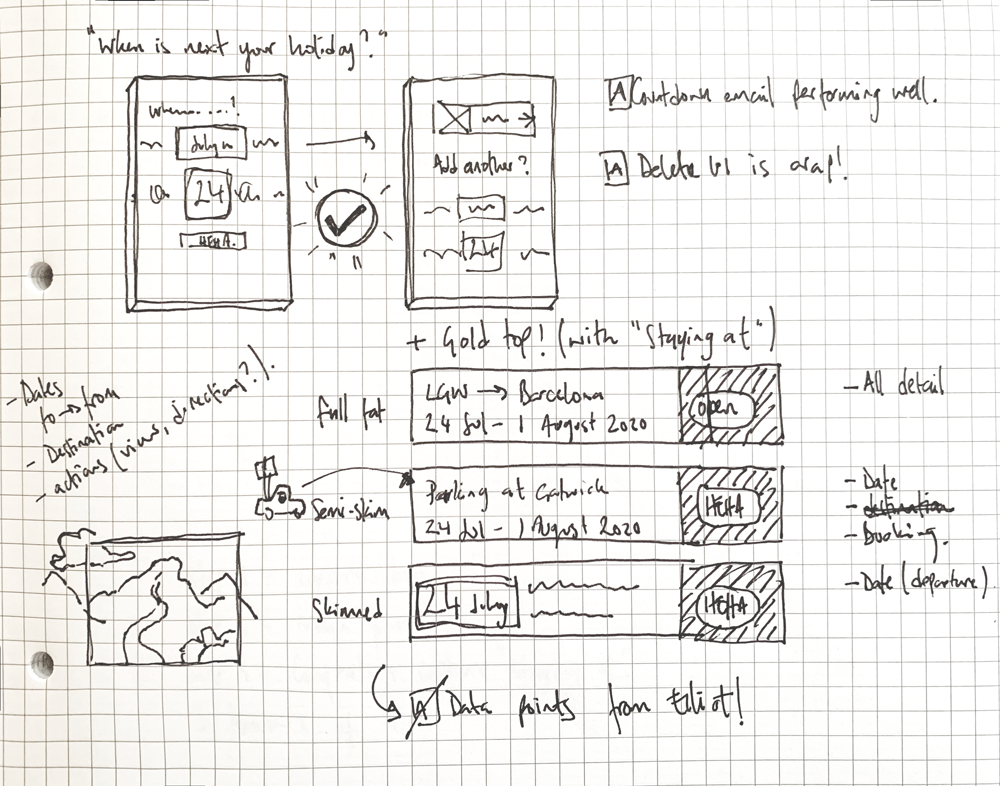 "When is next your holiday?"
When.....?
July
24
HEHA.
Add another?
24
A Countdown email performing well.
A Delete UI is crap!
+ Gold top! (with "Staying at")
- Dates
to → from
- Destination
- actions (views, directions?).
Full fat
LGW → Barcelona
24 Jul - 1 August 2020
open
- All detail
Semi-skim
Parking at Gatwick
24 Jul - 1 August 2020
HEHA
- Date
- destination
- Booking.
Skimmed
24 July
HEHA
- Date (departure)
A Data points from Elliot!